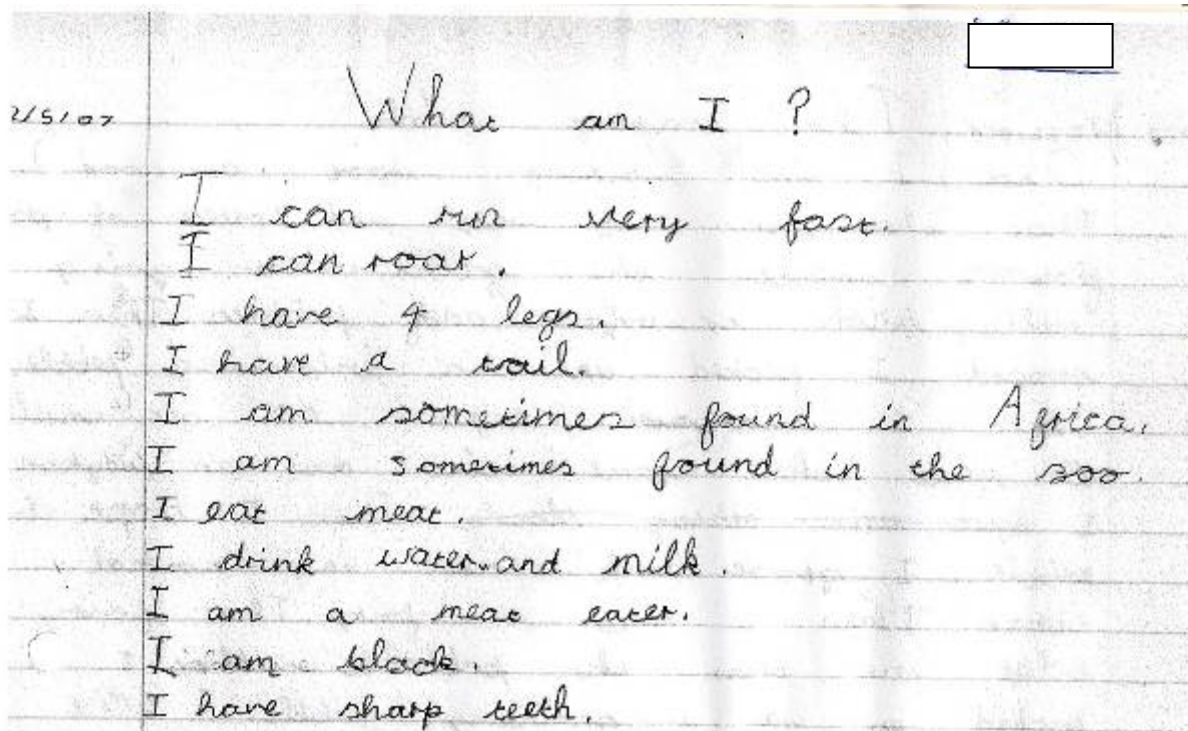 What am I ?
2/5/07
I can run very fast.
I can roar.
I have 4 legs.
I have a tail.
I am sometimes found in Africa.
I am sometimes found in the zoo.
I eat meat.
I drink water and milk.
I am a meat eater.
I am black.
I have sharp teeth.